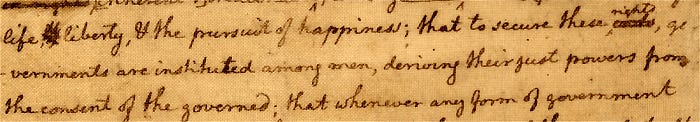 life, liberty, & the pursuit of happiness; that to secure these rights, go
-vernments are instituted among men, deriving their just powers from
the consent of the governed; that whenever any form of government